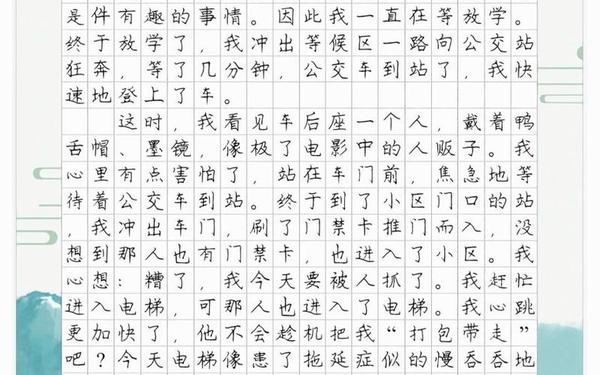 是件有趣的事情。因此我一直在等放学。
终于放学了，我冲出等候区一路向公交站
狂奔，等了几分钟，公交车到站了，我快
速地登上了车。
这时，我看见车后座一个人，戴着鸭
舌帽、墨镜，像极了电影中的人贩子。我
心里有点害怕了，站在车门前，焦急地等
待着公交车到站。终于到了小区门口的站
，我冲出车门，刷了门禁卡推门而入，没
想到那人也有门禁卡，也进入了小区。我
心想：糟了，我今天要被人抓了。我赶忙
进入电梯，可那人也进入了电梯。我心跳
更加快了，他不会趁机把我“打包带走”
吧？今天电梯像患了拖延症似的慢吞吞地